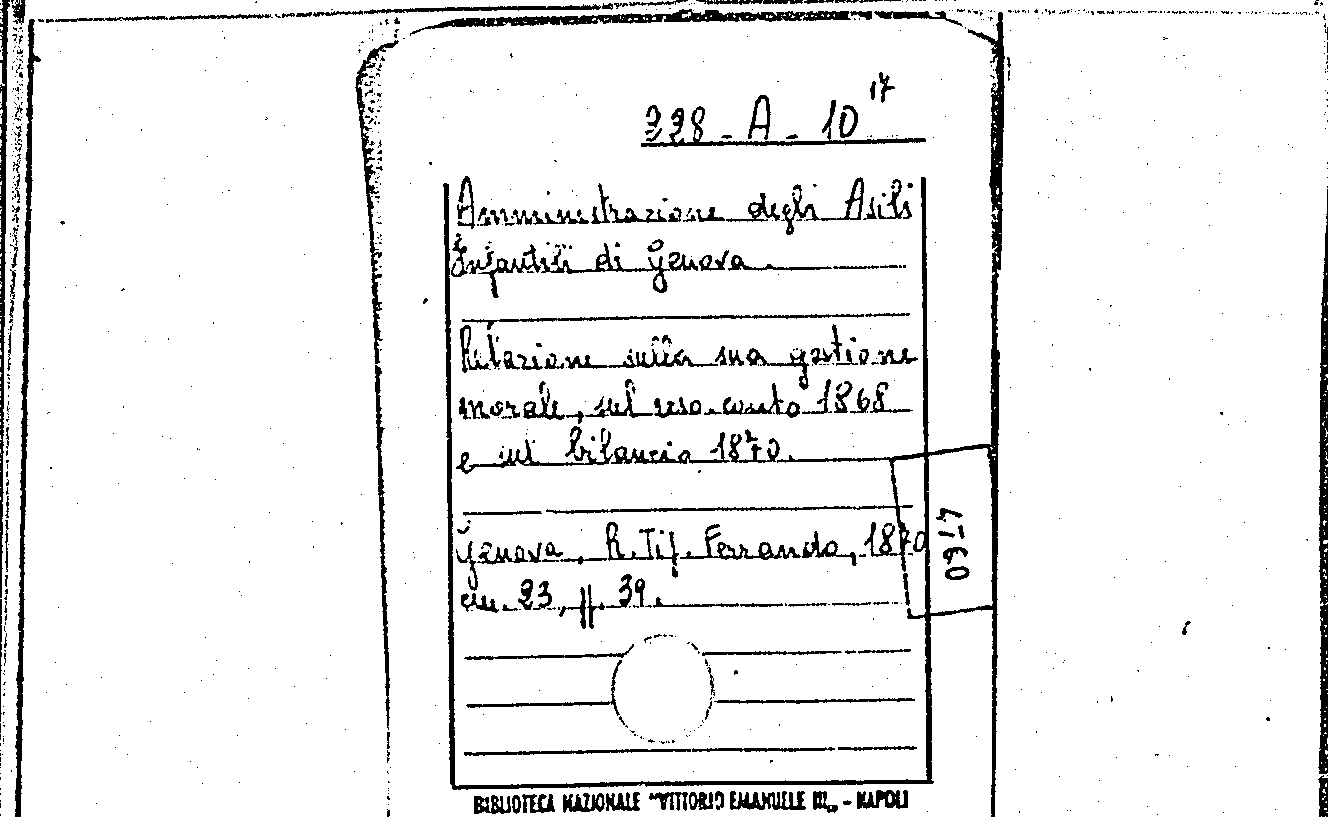 228-A-10 17
Amministrazione degli Asili
Infantili di Genova.
Relazione sulla sua gestione
morale, sul reso-conto 1868
e sul bilancio 1870.
Genova, R. Tip. Ferrando, 1870
cm. 23, pp. 39.
47-60
BIBLIOTECA NAZIONALE "VITTORIO EMANUELE III„ - NAPOLI